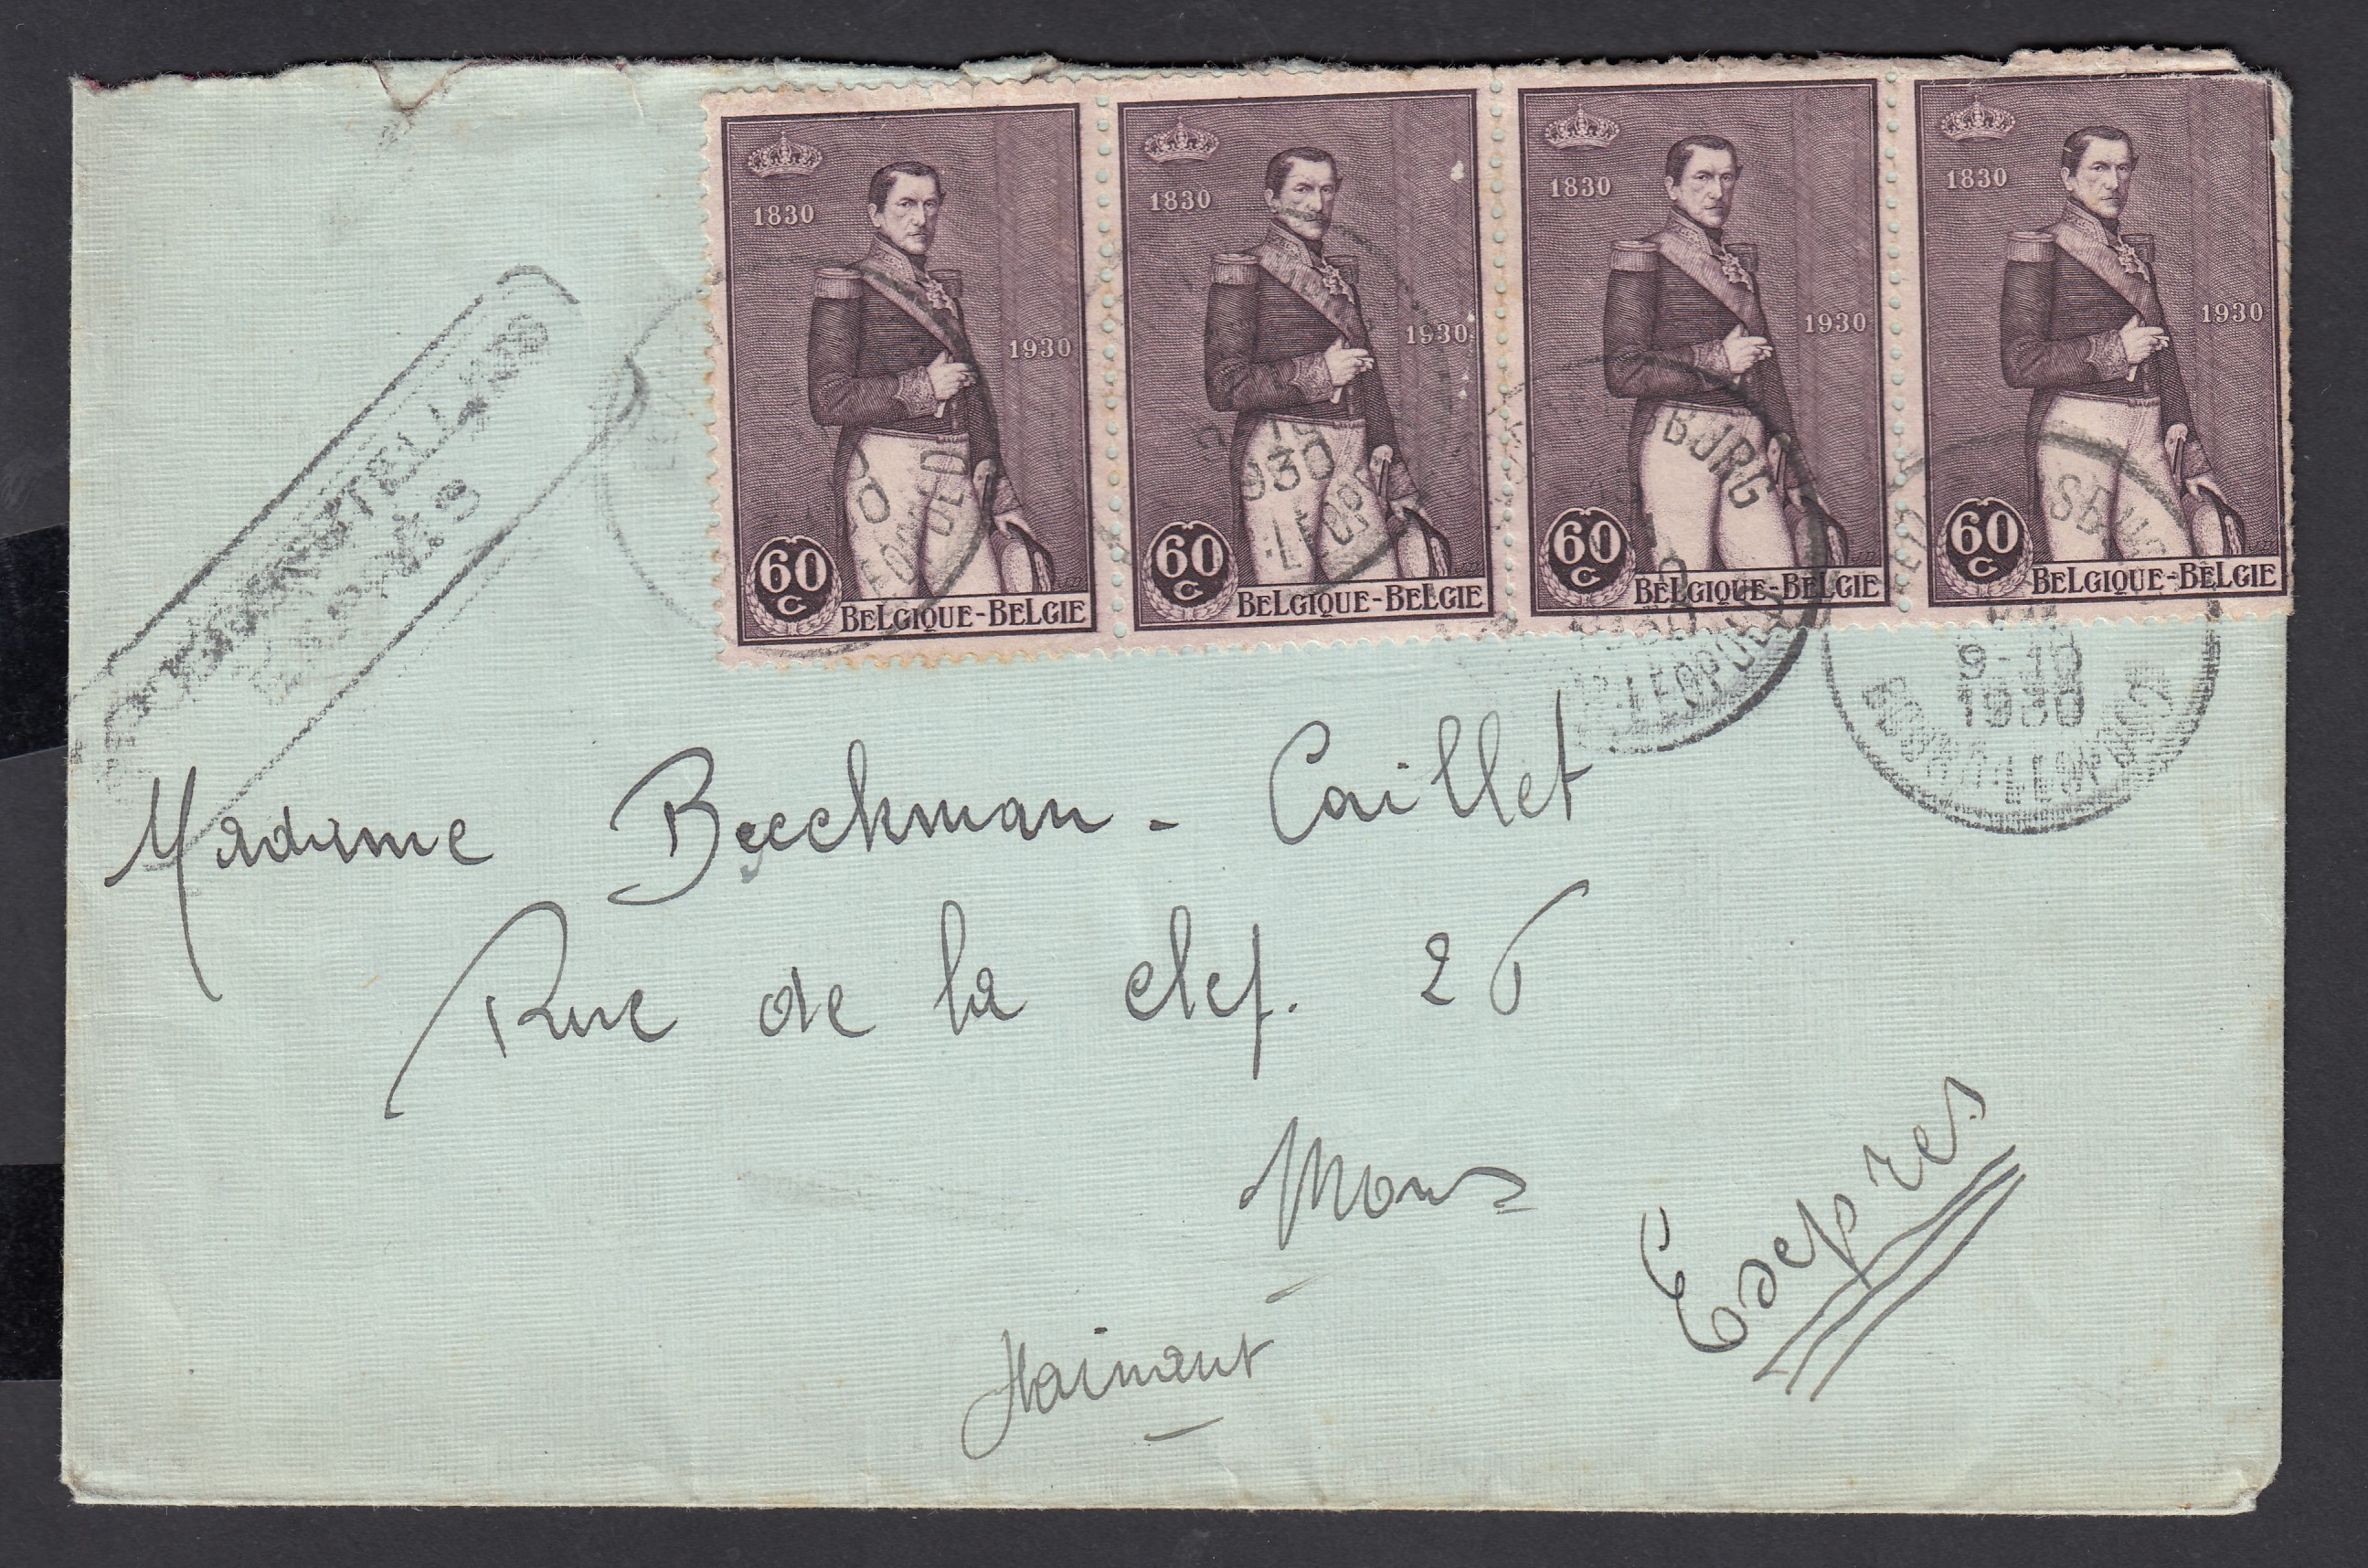 1830 1830 1830 1830
1930 1930 1930 1930
60 c 60 c 60 c 60 c
BELGIQUE-BELGIE BELGIQUE-BELGIE BELGIQUE-BELGIE BELGIQUE-BELGIE
BURG
9-10
1930
Madame Beeckman - Caillet
Rue de la clef. 26
Mons
Hainaut
Expres